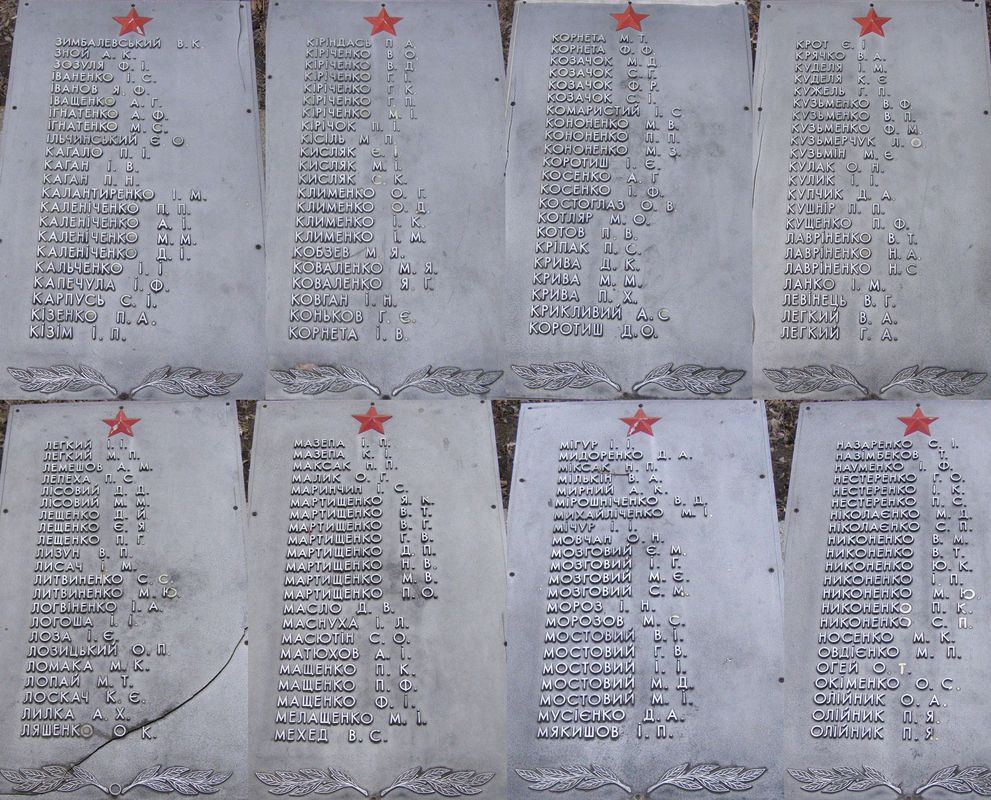 ЗИМБАЛЕВСЬКИЙ В. К.
ЗНОЙ А. К.
ЗОЗУЛЯ Ф. І.
ІВАНЕНКО І. С.
ІВАНОВ Я. Ф.
ІВАЩЕНКО А. Г.
ІГНАТЕНКО А. Ф.
ІГНАТЕНКО М. С.
ІЛЬЧИНСЬКИЙ Є. О
КАГАЛО П. І.
КАГАН І. В.
КАГАН П. Н.
КАЛАНТИРЕНКО І. М.
КАЛЕНІЧЕНКО П. П.
КАЛЕНІЧЕНКО А. І.
КАЛЕНІЧЕНКО М. М.
КАЛЕНІЧЕНКО Д. І.
КАЛЬЧЕНКО І. І
КАПЕЧУЛА І. Ф.
КАРПУСЬ С. І.
КІЗЕНКО П. А.
КІЗІМ І. П.
КІРІНДАСЬ П. А.
КІРІЧЕНКО В. О.
КІРІЧЕНКО В. П.
КІРІЧЕНКО Г. І.
КІРІЧЕНКО Г. К.
КІРІЧЕНКО Г. П.
КІРІЧЕНКО М. І.
КІРІЧОК П. І.
КІСІЛЬ М. П.
КИСЛЯК Є. І.
КИСЛЯК М. І.
КИСЛЯК С. К.
КЛИМЕНКО О. Г.
КЛИМЕНКО О. Д.
КЛИМЕНКО І. К.
КЛИМЕНКО І. М.
КОБЗЕВ М. Я.
КОВАЛЕНКО М. Я.
КОВАЛЕНКО Я. Г.
КОВГАН І. Н.
КОНЬКОВ Г. Є.
КОРНЕТА І. В.
КОРНЕТА М. Т.
КОРНЕТА Ф. Ф.
КОЗАЧОК М. Д.
КОЗАЧОК С. Г.
КОЗАЧОК Ф. Р.
КОЗАЧОК С. І.
КОМАРИСТИЙ І. С
КОНОНЕНКО М. В.
КОНОНЕНКО П. П.
КОНОНЕНКО М.
КОРОТИШ І. Є.
КОСЕНКО А. Г.
КОСЕНКО І. Ф.
КОСТОГЛАЗ О. В
КОТЛЯР М. О.
КОТОВ П. В.
КРІПАК П. С.
КРИВА Д. К.
КРИВА М. М.
КРИВА П. Х.
КРИКЛИВИЙ А. С
КОРОТИШ Д. О.
КРОТ Є. І
КРЯЧКО В. А.
КУДЕЛЯ І. М.
КУДЕЛЯ К. Є.
КУЖЕЛЬ Г. П.
КУЗЬМЕНКО В. Ф.
КУЗЬМЕНКО В. П.
КУЗЬМЕНКО Ф. М.
КУЗЬМЕРЧУК Л. О
КУЗЬМІН М. Є.
КУЛАК О. Н.
КУЛИК І. І.
КУПЧИК Д. А.
КУШНІР П. П.
КУЩЕНКО П. Ф.
ЛАВРІНЕНКО В. Т.
ЛАВРІНЕНКО Н. А.
ЛАВРІНЕНКО Н. С
ЛАНКО І. М.
ЛЕВІНЕЦЬ В. Г.
ЛЕГКИЙ В. А.
ЛЕГКИЙ Г. А.
ЛЕГКИЙ І. І.
ЛЕГКИЙ М. П.
ЛЕМЕШОВ А. М.
ЛЕПЕХА П. С.
ЛІСОВИЙ Д. Д.
ЛІСОВИЙ М. М.
ЛЕЩЕНКО Д. Й.
ЛЕЩЕНКО Є. Я
ЛЕЩЕНКО П. Г.
ЛИЗУН В. П.
ЛИСАЧ І. М.
ЛИТВИНЕНКО С. С.
ЛИТВИНЕНКО М. Ю.
ЛОГВІНЕНКО І. А.
ЛОГОША І. І.
ЛОЗА І. Є.
ЛОЗИЦЬКИЙ О. П.
ЛОМАКА М. К.
ЛОПАЙ М. Т.
ЛОСКАЧ К. Є.
ЛИЛКА А. Х.
ЛЯШЕНКО О К.
МАЗЕПА І. П.
МАЗЕПА К. І.
МАКСАК Н. П.
МАЛИК О. Г.
МАРИНЧИН І. С.
МАРТИЩЕНКО Я. К.
МАРТИЩЕНКО В. Т.
МАРТИЩЕНКО В. Г.
МАРТИЩЕНКО Г. В.
МАРТИЩЕНКО Д. П.
МАРТИЩЕНКО Н. В.
МАРТИЩЕНКО М. В.
МАРТИЩЕНКО П. О.
МАСЛО Д. В.
МАСНУХА І. Л.
МАСЮТІН С. О.
МАТЮХОВ А. І.
МАЩЕНКО П. К.
МАЩЕНКО П. Ф.
МАЩЕНКО Ф. І.
МЕЛАЩЕНКО М. І.
МЕХЕД В. С.
МІГУР І. І.
МИДОРЕНКО Д. А.
МІКСАК Н. П.
МІЛЬКІН В. А.
МИРНИЙ А. К.
МІРОШНІЧЕНКО В. Д.
МИХАИЛІЧЕНКО М. І.
МІЧУР І. І.
МОВЧАН О. Н.
МОЗГОВИЙ Є. М.
МОЗГОВИЙ І. Г.
МОЗГОВИЙ М. Є.
МОЗГОВИЙ С. М.
МОРОЗ І. Н.
МОРОЗОВ М. С.
МОСТОВИЙ В. І.
МОСТОВИЙ Г. В.
МОСТОВИЙ І. І.
МОСТОВИЙ М. Д.
МОСТОВИЙ М. І.
МУСІЄНКО Д. А.
МЯКИШОВ І. П.
НАЗАРЕНКО С. І.
НАЗІМБЕКОВ Т.
НАУМЕНКО І. Ф.
НЕСТЕРЕНКО Г. О.
НЕСТЕРЕНКО І. К.
НЕСТЕРЕНКО П. С.
НІКОЛАЄНКО М. Д.
НІКОЛАЄНКО С. П.
НИКОНЕНКО В. М.
НИКОНЕНКО В. Т.
НИКОНЕНКО Ю. К.
НИКОНЕНКО І. П.
НИКОНЕНКО М. Ю.
НИКОНЕНКО П. К.
НИКОНЕНКО С. П.
НОСЕНКО М. К.
ОВДІЄНКО М. П.
ОГЕЙ О. Т.
ОКІМЕНКО О. С.
ОЛІЙНИК О. А.
ОЛІЙНИК П. Я.
ОЛІЙНИК П. Я.